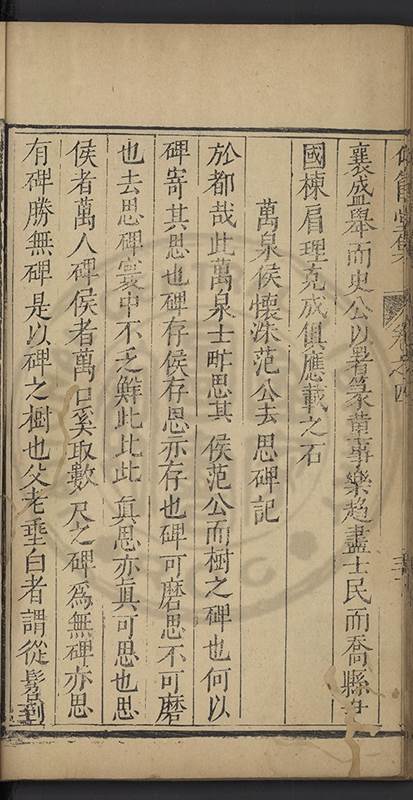 堂集 卷之四
襄盛舉而史公以署篆董事樂趨盡士民而喬縣
國棟肩理克成俱應載之石
萬泉侯懷洙范公去思碑記
於都哉此萬泉士甿思其 侯范公而樹之碑也何以
碑寄其思也碑存侯存思亦存也碑可磨思不可磨
也去思碑寰中不乏鮮此比此 真思亦真可思也思
侯者萬人碑侯者萬口奚取數 尺之碑爲無碑亦思
有碑勝無碑是以碑之樹也父老垂白者謂從髫